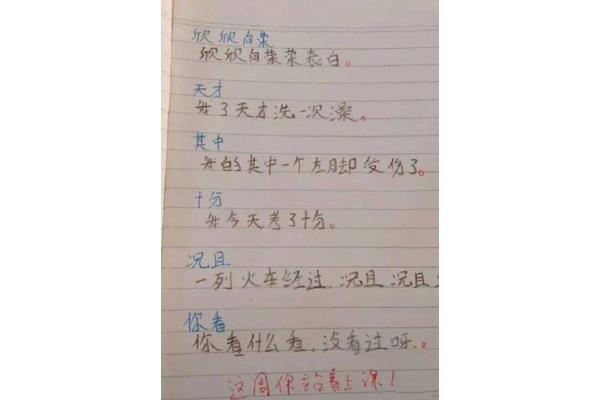 欣欣向荣
欣欣向荣荣表白。
天才
我3天才洗一次澡。
其中
我的其中一个左脚受伤了。
十分
我今天考了十分。
况且
一列火车经过，况且况且
你看
你看什么看，没看过呀。
这周你站着上课！